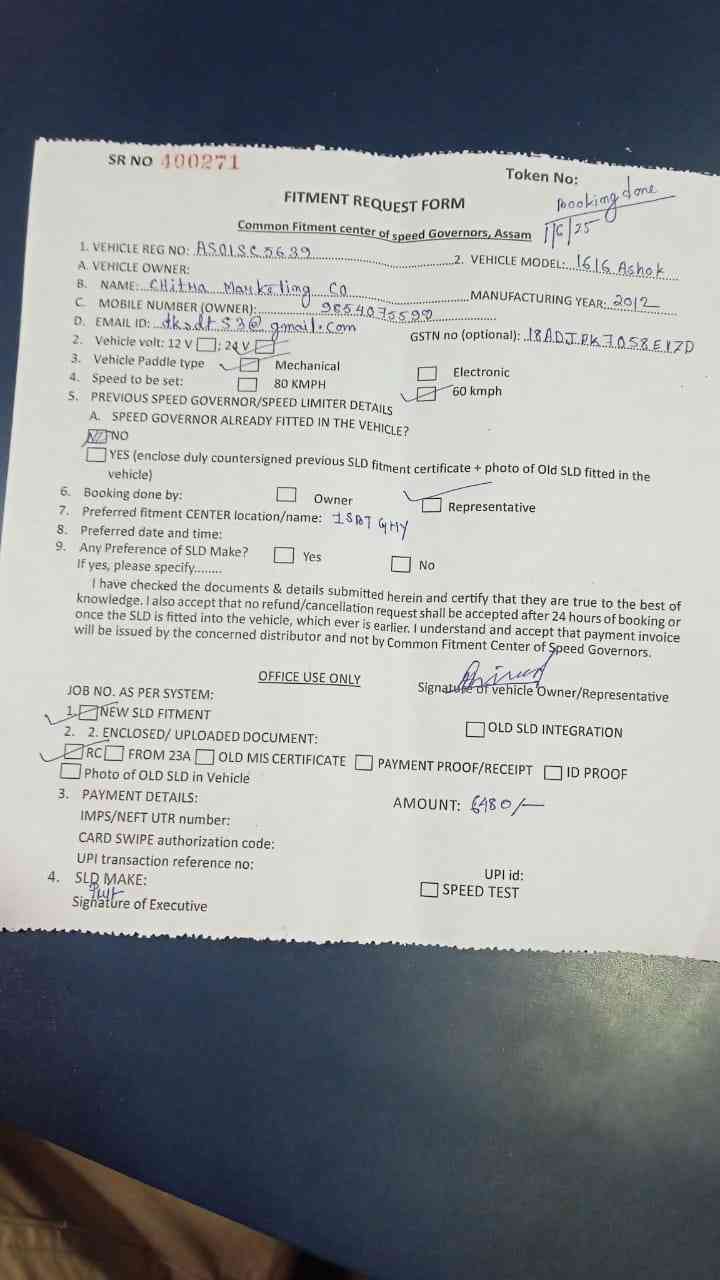 SR NO 400271
Token No:
Booking done
1/6/25
FITMENT REQUEST FORM
Common Fitment center of speed Governors, Assam
1. VEHICLE REG NO: AS01SC5639
2. VEHICLE MODEL: 1616 Ashok
A. VEHICLE OWNER:
B. NAME: Marketing Co
MANUFACTURING YEAR: 2012
C. MOBILE NUMBER (OWNER):
D. EMAIL ID: @gmail.com
GSTN no (optional):
2. Vehicle volt: 12 V ; 24 V
3. Vehicle Paddle type Mechanical Electronic
4. Speed to be set: 80 KMPH 60 kmph
5. PREVIOUS SPEED GOVERNOR/SPEED LIMITER DETAILS
A. SPEED GOVERNOR ALREADY FITTED IN THE VEHICLE?
NO
YES (enclose duly countersigned previous SLD fitment certificate + photo of Old SLD fitted in the
vehicle)
6. Booking done by: Owner Representative
7. Preferred fitment CENTER location/name: ISBT GHY
8. Preferred date and time:
9. Any Preference of SLD Make? Yes No
If yes, please specify........
I have checked the documents & details submitted herein and certify that they are true to the best of
knowledge. I also accept that no refund/cancellation request shall be accepted after 24 hours of booking or
once the SLD is fitted into the vehicle, which ever is earlier. I understand and accept that payment invoice
will be issued by the concerned distributor and not by Common Fitment Center of Speed Governors.
OFFICE USE ONLY
Signature of vehicle Owner/Representative
JOB NO. AS PER SYSTEM:
1. NEW SLD FITMENT
OLD SLD INTEGRATION
2. 2. ENCLOSED/ UPLOADED DOCUMENT:
RC FROM 23A OLD MIS CERTIFICATE PAYMENT PROOF/RECEIPT ID PROOF
Photo of OLD SLD in Vehicle
3. PAYMENT DETAILS:
AMOUNT: 6480/-
IMPS/NEFT UTR number:
CARD SWIPE authorization code:
UPI transaction reference no:
UPI id:
4. SLD MAKE:
SPEED TEST
Signature of Executive